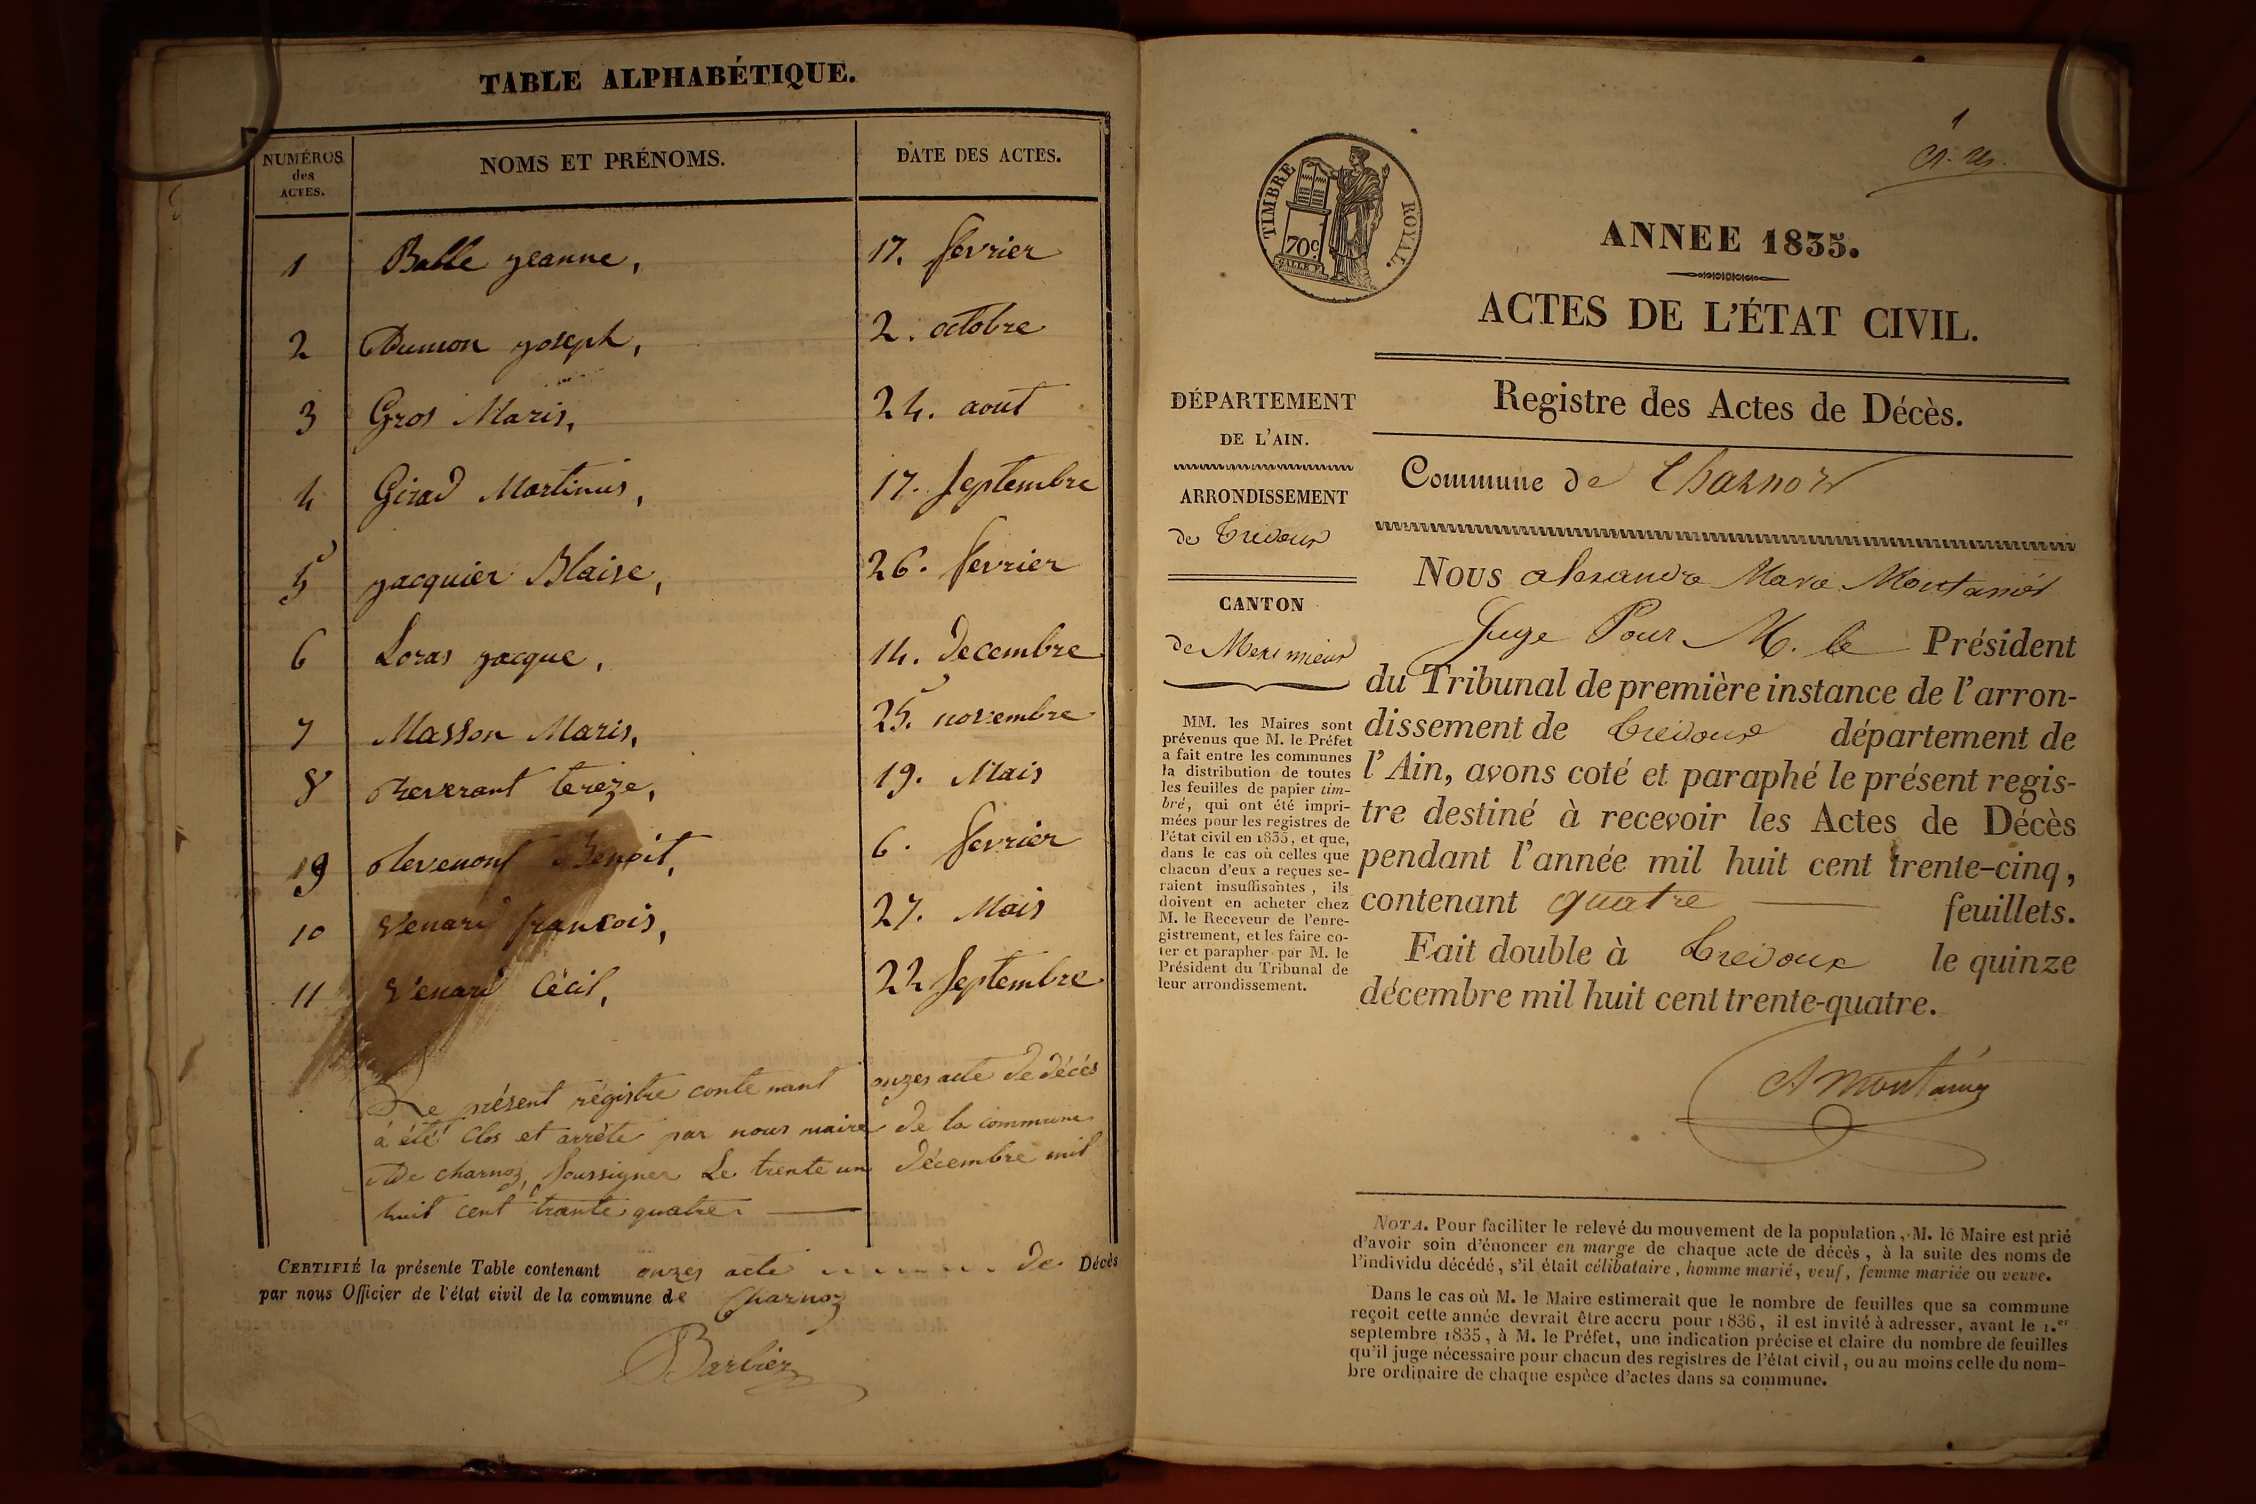 TABLE ALPHABÉTIQUE.
NUMÉROS des ACTES. NOMS ET PRÉNOMS. DATE DES ACTES.
1 Balle jeanne, 17. fevrier
2 Dumon joseph, 2. octobre
3 Gros Marie, 24. aout
4 Girad Martinus, 17. Septembre
5 jacquier Blaise, 26. fevrier
6 Loras jacque, 14. Decembre
7 Masson Marie, 25. novembre
8 Reverant tereze, 19. Mais
9 Revenont Benoit, 6. fevrier
10 Venard francois, 27. Mais
11 Venard Cécil, 22 Septembre
Le présent régistre contenant onzes acte de décés
á été clos et arrète par nous maire de la commune
De charnoz, soussigner Le trente un décembre mil
huit cent trante quatre.
CERTIFIÉ la présente Table contenant onzes acte de Décès
par nous Officier de l'état civil de la commune de Charnoz
Barbier
1
TIMBRE ROYAL.
70c.
ANNEE 1835.
ACTES DE L'ÉTAT CIVIL.
Registre des Actes de Décès.
DÉPARTEMENT
DE L'AIN.
ARRONDISSEMENT
de Trévoux
CANTON
de Meximieux
MM. les Maires sont
prévenus que M. le Préfet
a fait entre les communes
la distribution de toutes
les feuilles de papier tim-
bré, qui ont été impri-
mées pour les registres de
l'état civil en 1835, et que,
dans le cas où celles que
chacun d'eux a reçues se-
raient insuffisantes, ils
doivent en acheter chez
M. le Receveur de l'enre-
gistrement, et les faire co-
ter et parapher par M. le
Président du Tribunal de
leur arrondissement.
Commune de Charnoz
Nous alexandre Marie Montanier
Juge Pour M. le Président
du Tribunal de première instance de l'arron-
dissement de Trévoux département de
l'Ain, avons coté et paraphé le présent regis-
tre destiné à recevoir les Actes de Décès
pendant l'année mil huit cent trente-cinq,
contenant quatre feuillets.
Fait double à Trévoux le quinze
décembre mil huit cent trente-quatre.
NOTA. Pour faciliter le relevé du mouvement de la population, M. le Maire est prié
d'avoir soin d'énoncer en marge de chaque acte de décès, à la suite des noms de
l'individu décédé, s'il était célibataire, homme marié, veuf, femme mariée ou veuve.
Dans le cas où M. le Maire estimerait que le nombre de feuilles que sa commune
reçoit cette année devrait être accru pour 1836, il est invité à adresser, avant le 1.er
septembre 1835, à M. le Préfet, une indication précise et claire du nombre de feuilles
qu'il juge nécessaire pour chacun des registres de l'état civil, ou au moins celle du nom-
bre ordinaire de chaque espèce d'actes dans sa commune.